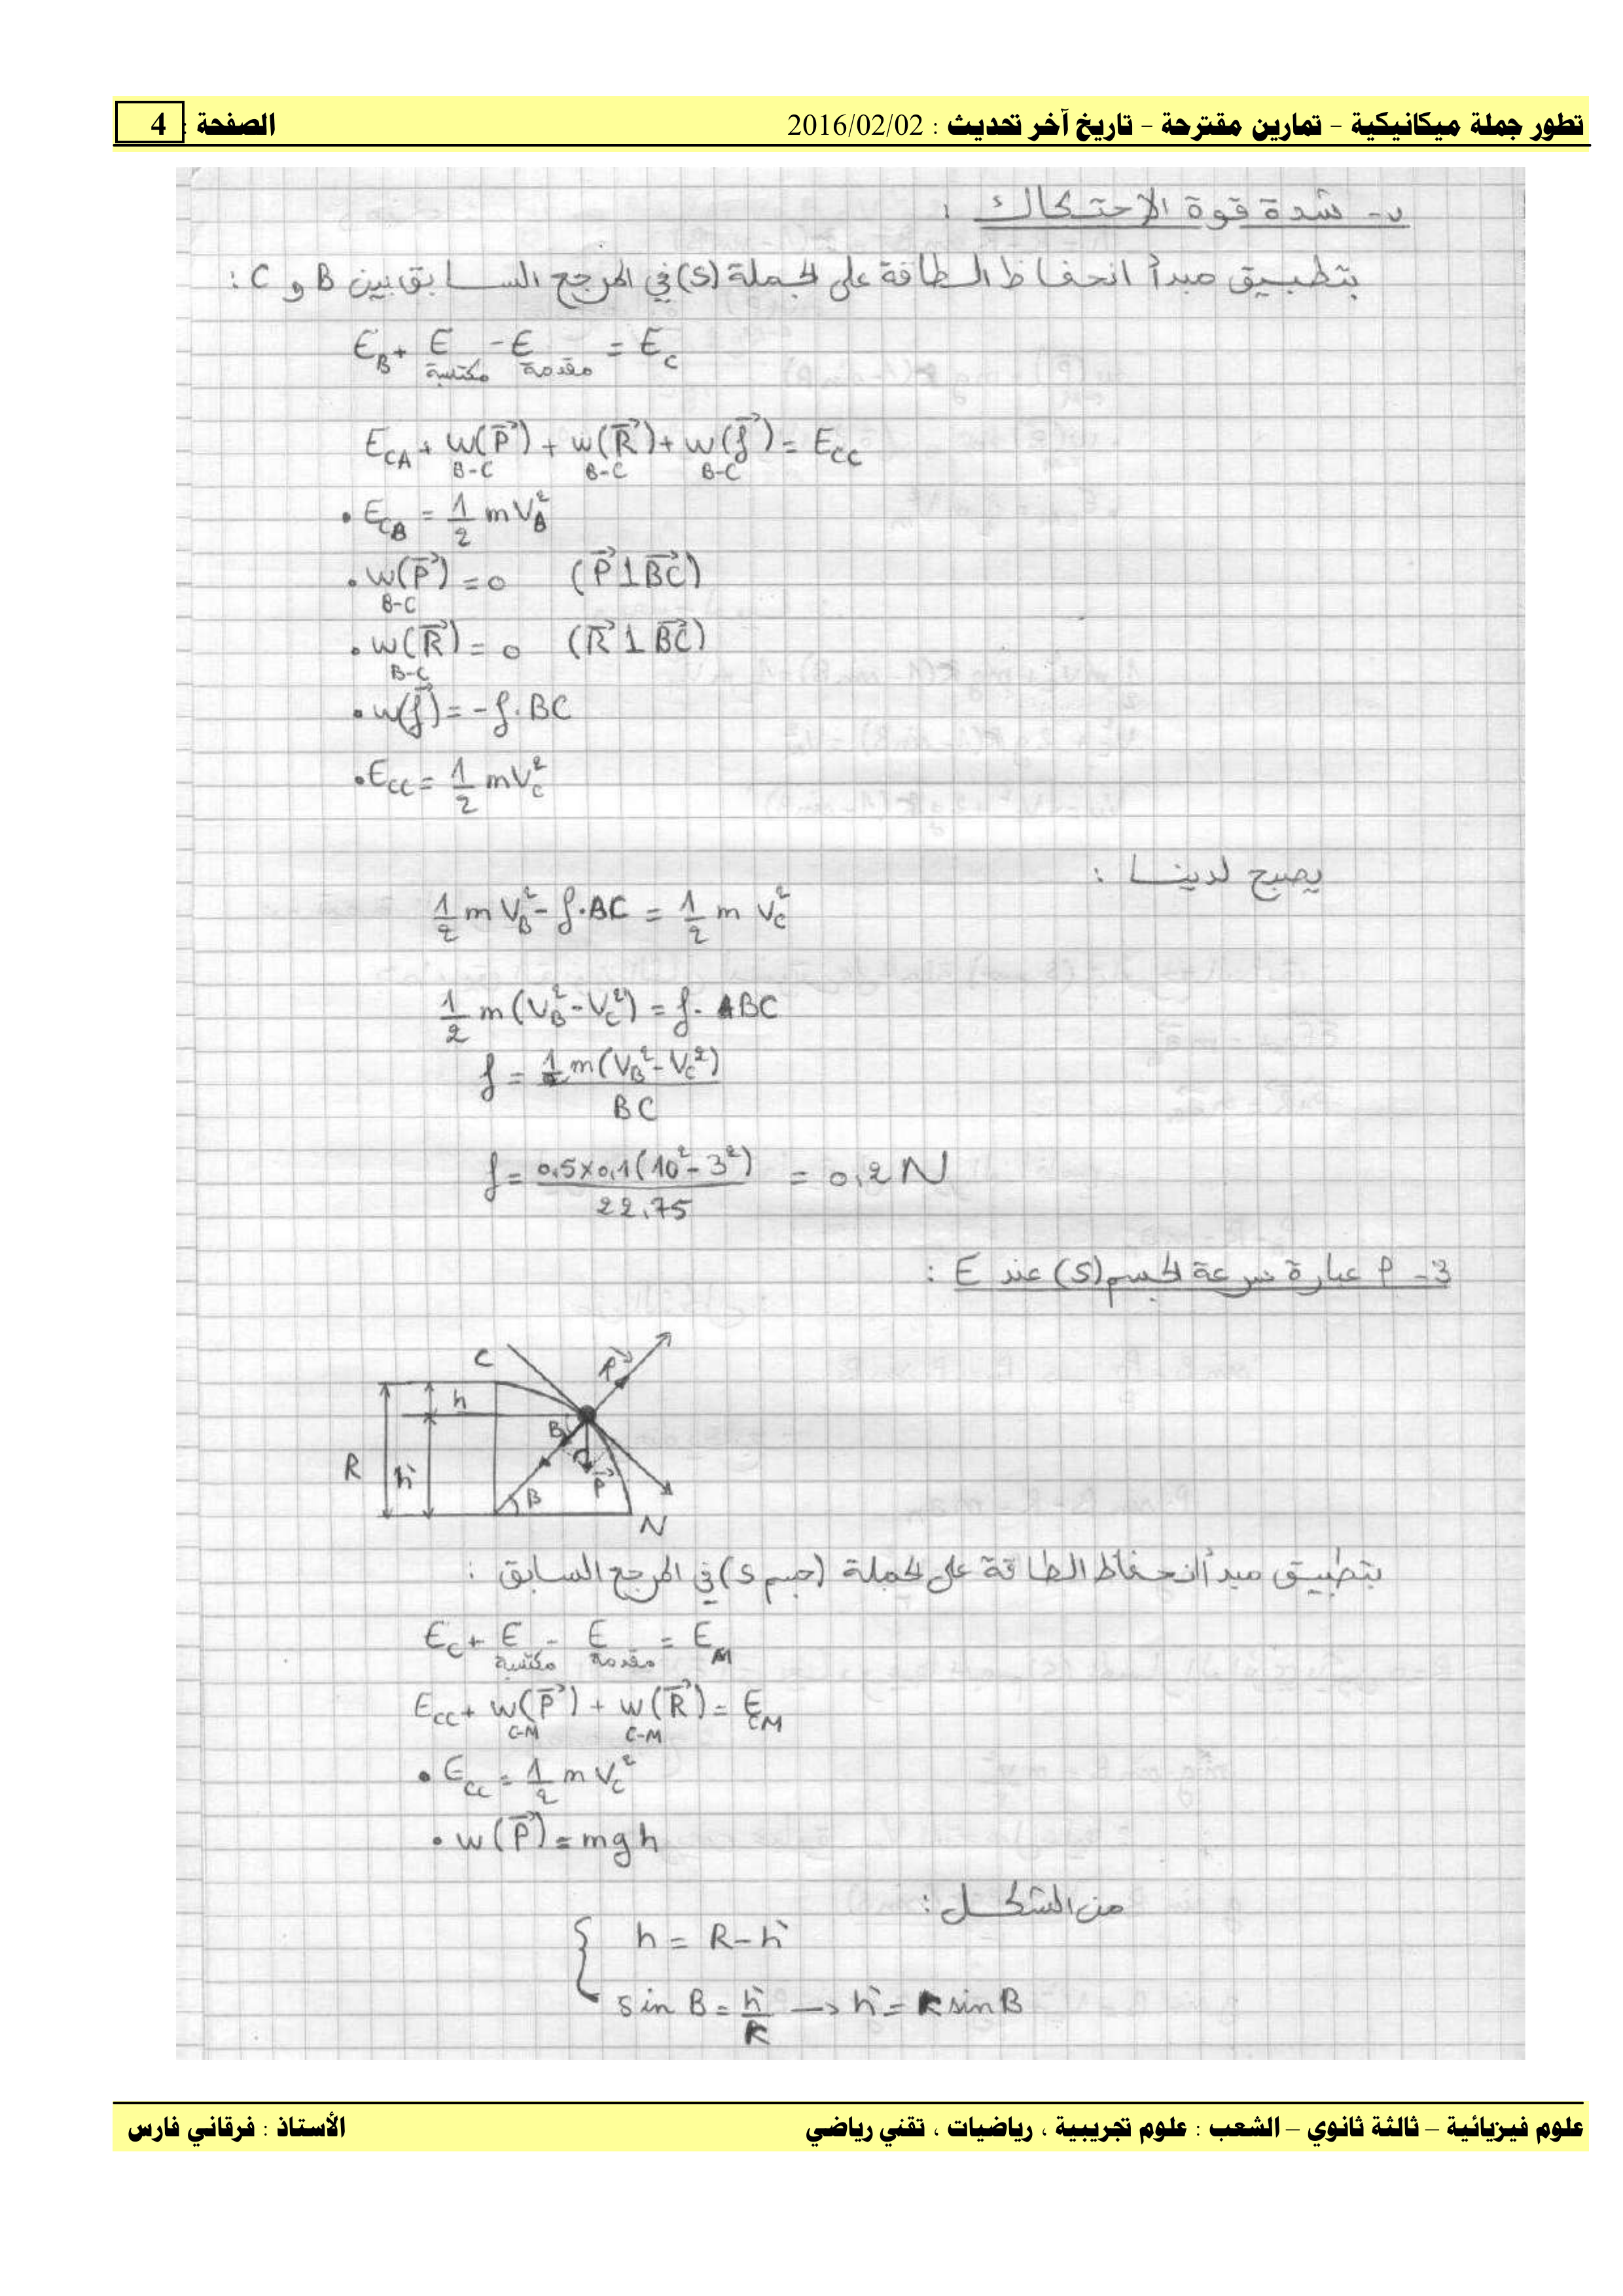 تطور جملة ميكانيكية – تمارين مقترحة – تاريخ آخر تحديث : 2016/02/02 الصفحة : 4
ب- شدة قوة الاحتكاك :
بتطبيق مبدأ انحفاظ الطاقة على الجملة (S) في المرجع السابق بين B و C :
E_B + E مكتسبة - E مقدمة = E_C
E_CA + w(P⃗)_B-C + w(R⃗)_B-C + w(f⃗)_B-C = E_CC
• E_CB = 1/2 m V_B²
• w(P⃗)_B-C = 0 (P⃗ ⊥ BC⃗)
• w(R⃗)_B-C = 0 (R⃗ ⊥ BC⃗)
• w(f⃗) = - f . BC
• E_CC = 1/2 m V_C²
يصبح لدينا :
1/2 m V_B² - f . BC = 1/2 m V_C²
1/2 m (V_B² - V_C²) = f . BC
f = 1/2 m (V_B² - V_C²) / BC
f = 0,5 x 0,1 (10² - 3²) / 22,75 = 0,2 N
3- P عبارة سرعة الجسم (S) عند E :
C
R⃗
h
B
R
h'
P⃗
B
N
بتطبيق مبدأ انحفاظ الطاقة على الجملة (جسم S) في المرجع السابق :
E_C + E مكتسبة - E مقدمة = E_M
E_CC + w(P⃗)_C-M + w(R⃗)_C-M = E_CM
• E_CC = 1/2 m V_C²
• w(P⃗) = mgh
من الشكل :
h = R - h'
sin B = h'/R → h' = R sin B
علوم فيزيائية – ثالثة ثانوي – الشعب : علوم تجريبية ، رياضيات ، تقني رياضي الأستاذ : فرقاني فارس